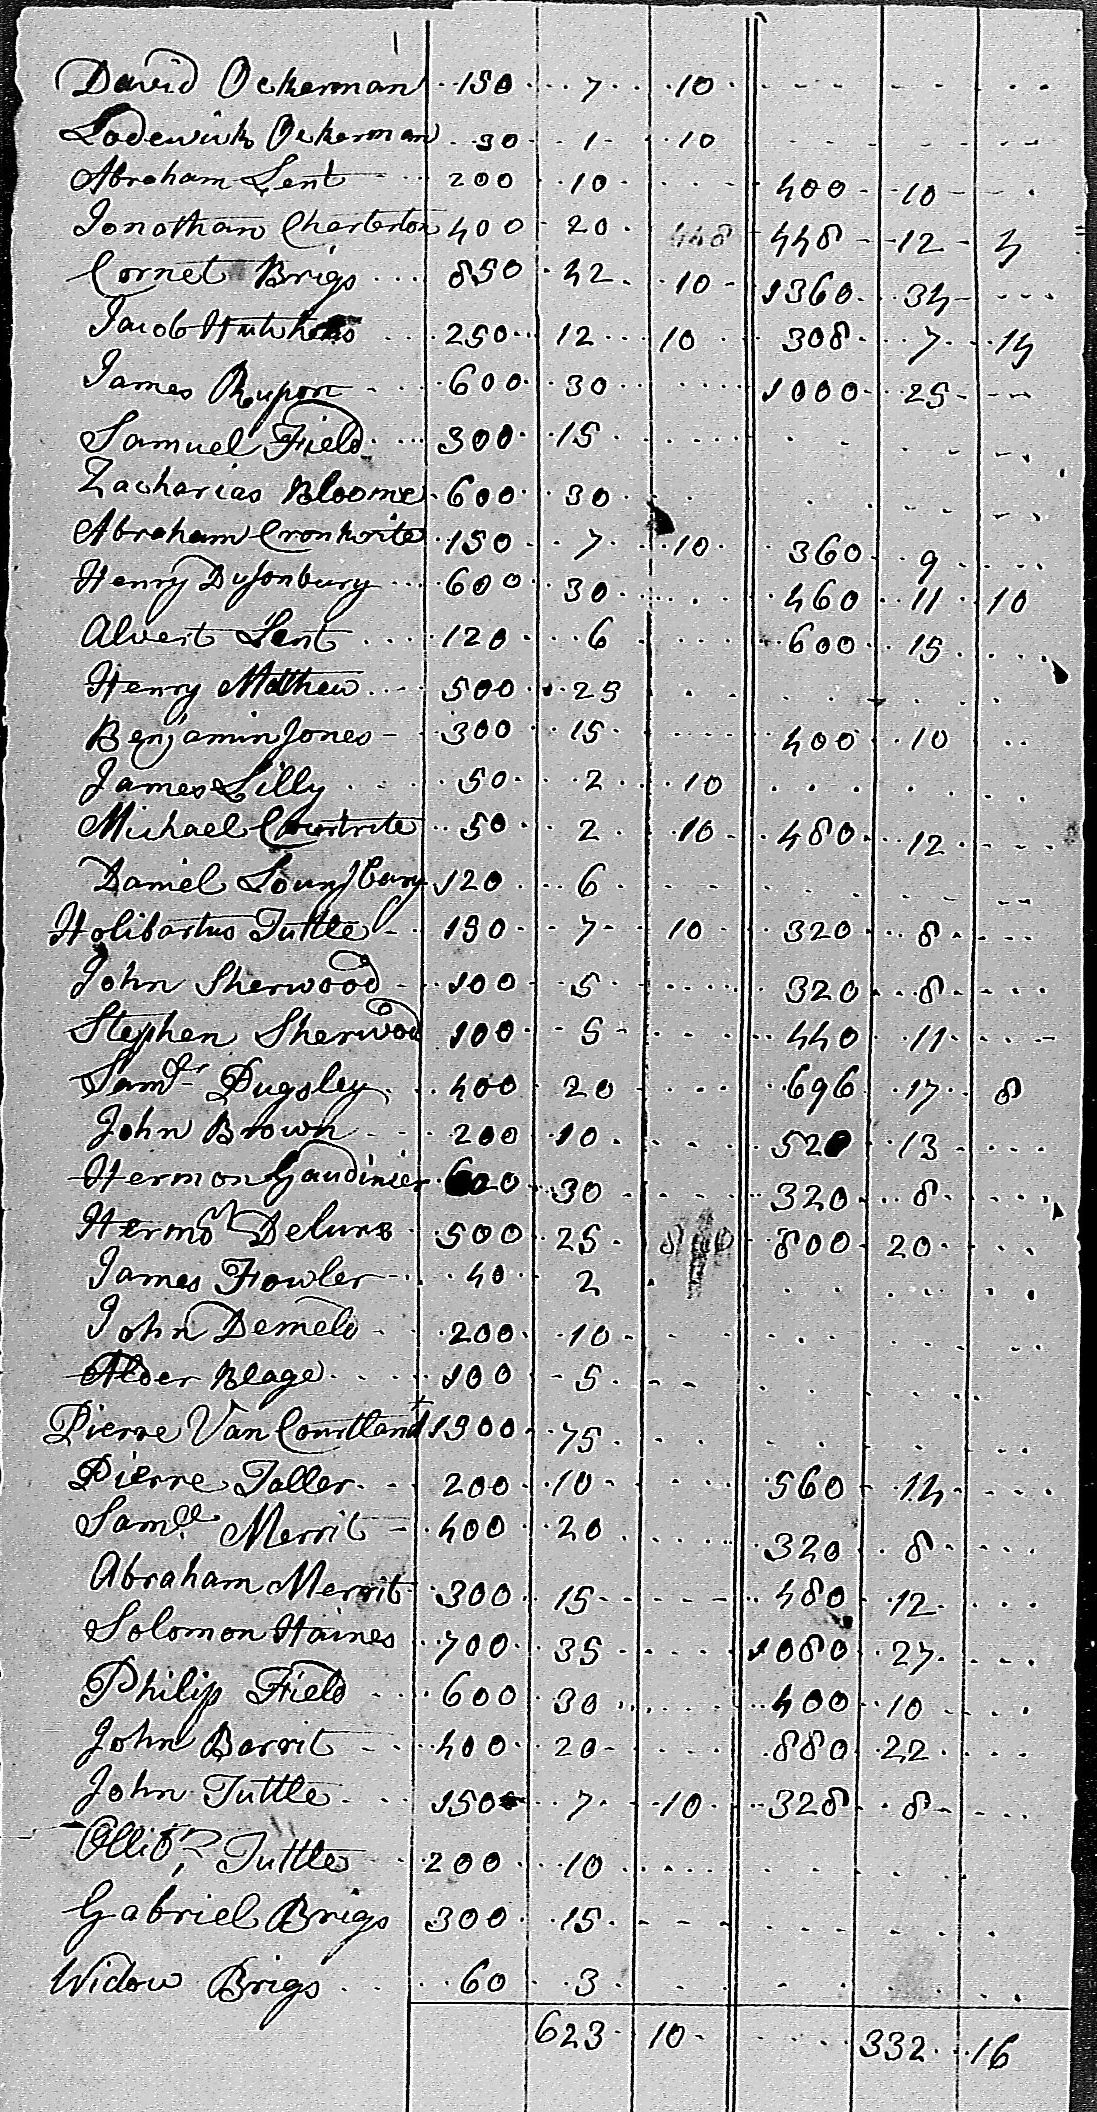 David Ockerman 150 7 10
Lodewick Ockerman 30 1 10
Abraham Lent 200 10 400 10
Jonathan Charterton 400 20 448 448 12 4
Cornet Brigs 850 42 10 1360 34
Jacob Hutchens 250 12 10 308 7 14
James Rupon 600 30 1000 25
Samuel Field 300 15
Zacharias Bloomer 600 30
Abraham Cronkrite 150 7 10 360 9
Henry Dusonbury 600 30 460 11 10
Alvert Lent 120 6 600 15
Henry Mathew 500 25
Benjamin Jones 300 15 400 10
James Lilly 50 2 10
Michael Courtrite 50 2 10 480 12
Daniel Lounsbury 120 6
Holibartus Tuttle 150 7 10 320 8
John Sherwood 100 5 320 8
Stephen Sherwood 100 5 440 11
Saml Pugsley 400 20 696 17 8
John Brown 200 10 520 13
Hermon Gaudinier 600 30 320 8
Hermos Deluns 500 25 800 800 20
James Fowler 40 2
John Demeld 200 10
Alder Blage 100 5
Pierre Van Courtland 1500 75
Pierre Taller 200 10 560 14
Samll Merrit 400 20 320 8
Abraham Merrit 300 15 480 12
Solomon Haines 700 35 1080 27
Philip Field 600 30 400 10
John Barrit 400 20 880 22
John Tuttle 150 7 10 328 8
Tuttle 200 10
Gabriel Brigs 300 15
Widow Brigs 60 3
623 10 332 16